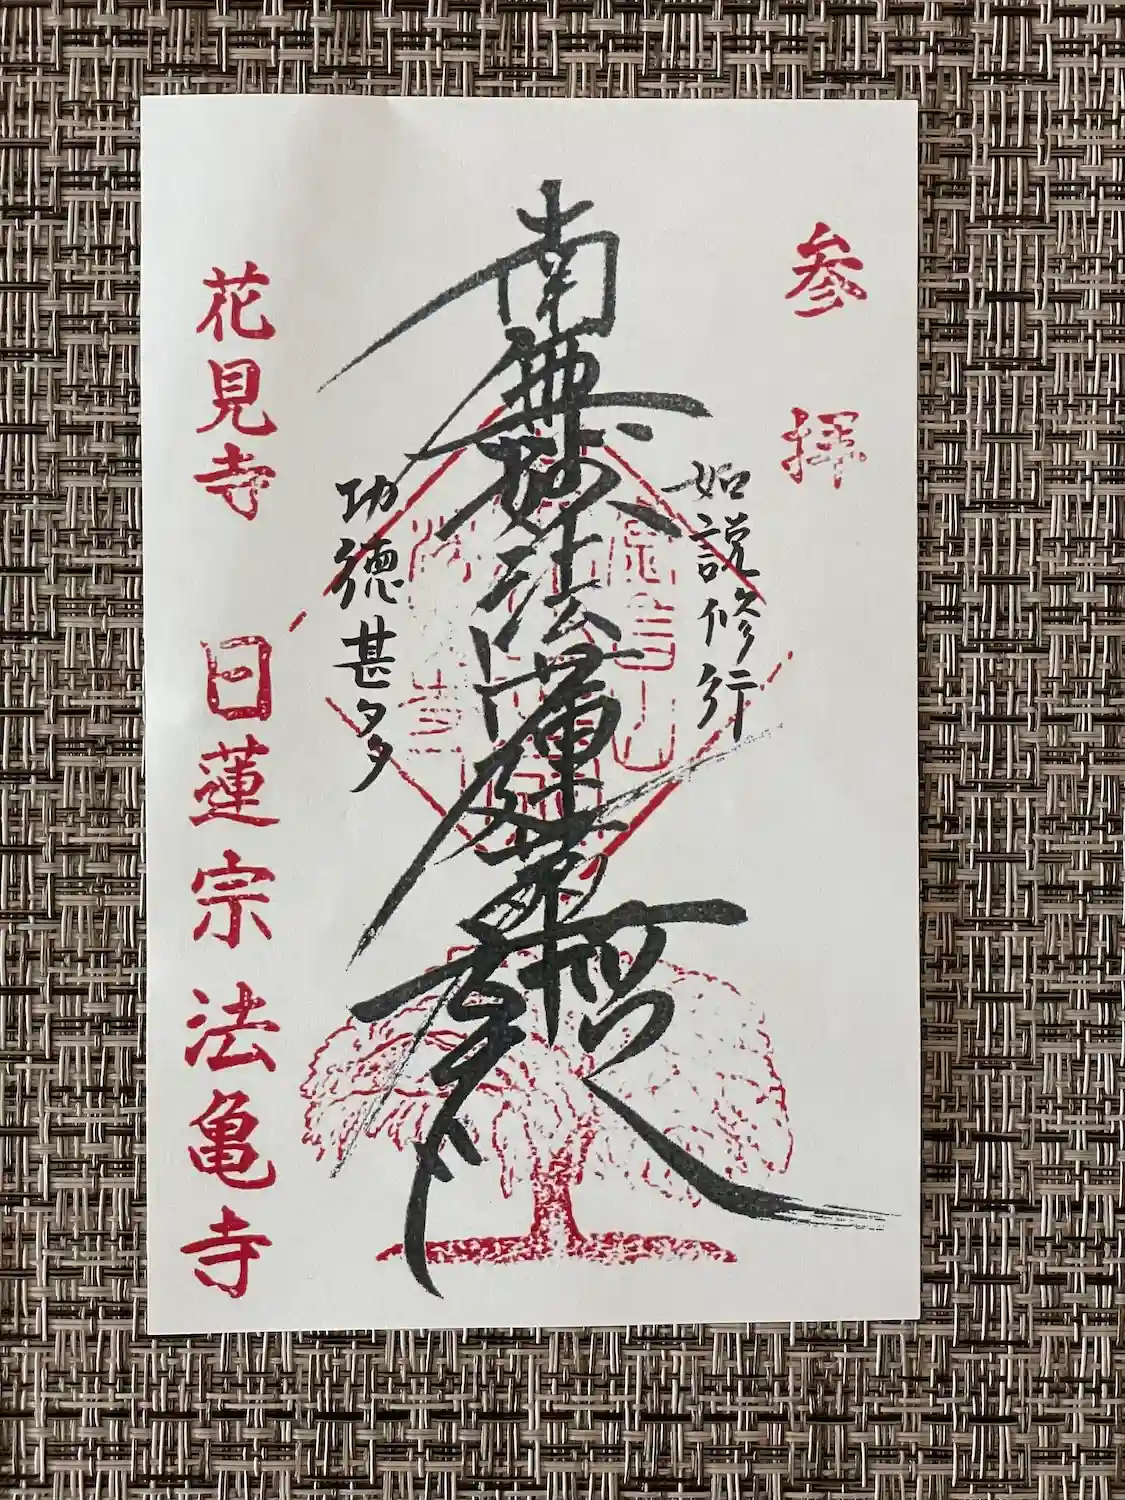 参拝
如説修行
南無妙法蓮華経
功徳甚多
花見寺
日蓮宗法亀寺